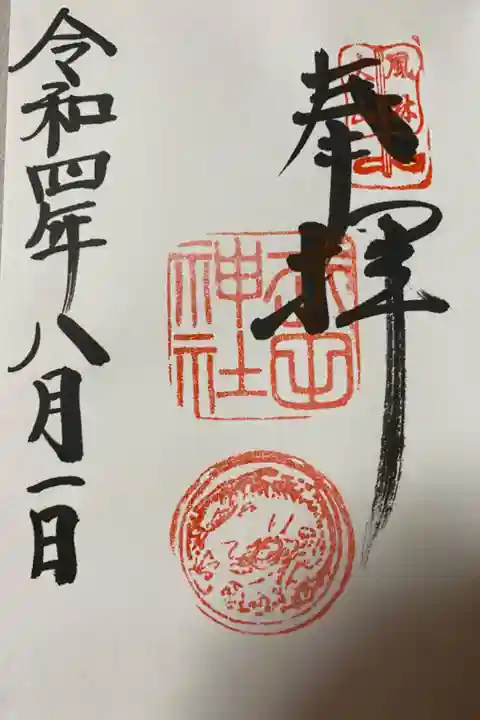 奉拝
風林火山
武田神社
令和四年八月一日